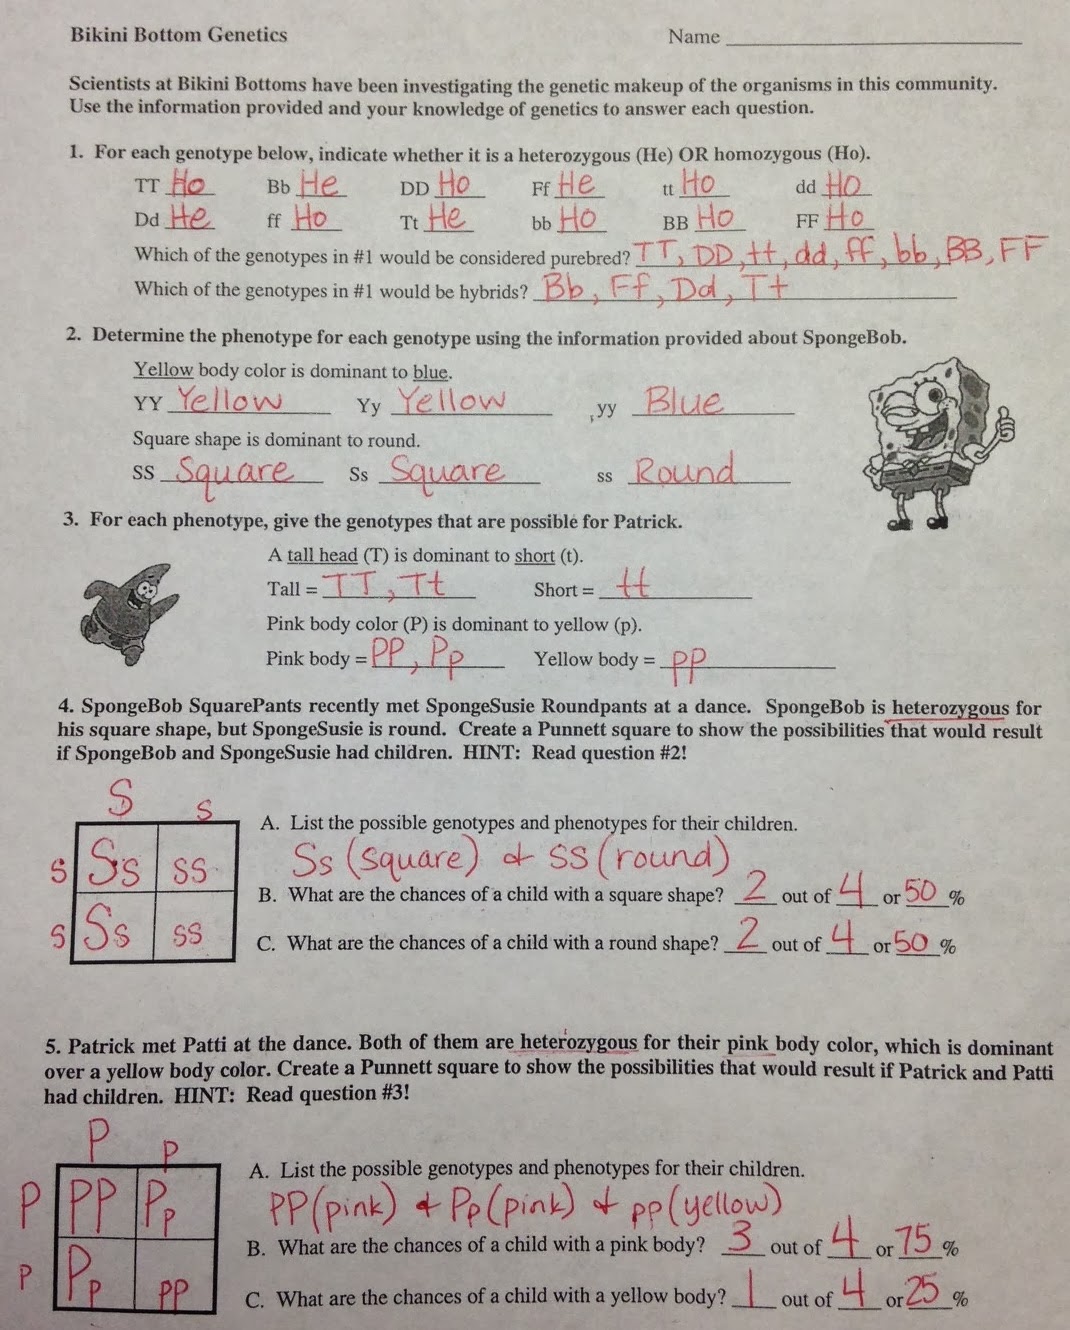 Bikini Bottom Genetics Name
Scientists at Bikini Bottoms have been investigating the genetic makeup of the organisms in this community.
Use the information provided and your knowledge of genetics to answer each question.
1. For each genotype below, indicate whether it is a heterozygous (He) OR homozygous (Ho).
TT Ho Bb He DD Ho Ff He tt Ho dd Ho
Dd He ff Ho Tt He bb Ho BB Ho FF Ho
Which of the genotypes in #1 would be considered purebred? TT, DD, tt, dd, ff, bb, BB, FF
Which of the genotypes in #1 would be hybrids? Bb, Ff, Dd, Tt
2. Determine the phenotype for each genotype using the information provided about SpongeBob.
Yellow body color is dominant to blue.
YY Yellow Yy Yellow yy Blue
Square shape is dominant to round.
SS Square Ss Square ss Round
3. For each phenotype, give the genotypes that are possible for Patrick.
A tall head (T) is dominant to short (t).
Tall = TT, Tt Short = tt
Pink body color (P) is dominant to yellow (p).
Pink body = PP, Pp Yellow body = pp
4. SpongeBob SquarePants recently met SpongeSusie Roundpants at a dance. SpongeBob is heterozygous for
his square shape, but SpongeSusie is round. Create a Punnett square to show the possibilities that would result
if SpongeBob and SpongeSusie had children. HINT: Read question #2!
S s
A. List the possible genotypes and phenotypes for their children.
s Ss ss
Ss (square) & ss (round)
B. What are the chances of a child with a square shape? 2 out of 4 or 50 %
s Ss ss
C. What are the chances of a child with a round shape? 2 out of 4 or 50 %
5. Patrick met Patti at the dance. Both of them are heterozygous for their pink body color, which is dominant
over a yellow body color. Create a Punnett square to show the possibilities that would result if Patrick and Patti
had children. HINT: Read question #3!
P p
A. List the possible genotypes and phenotypes for their children.
P PP Pp
PP (pink) & Pp (pink) & pp (yellow)
B. What are the chances of a child with a pink body? 3 out of 4 or 75 %
p Pp pp
C. What are the chances of a child with a yellow body? 1 out of 4 or 25 %